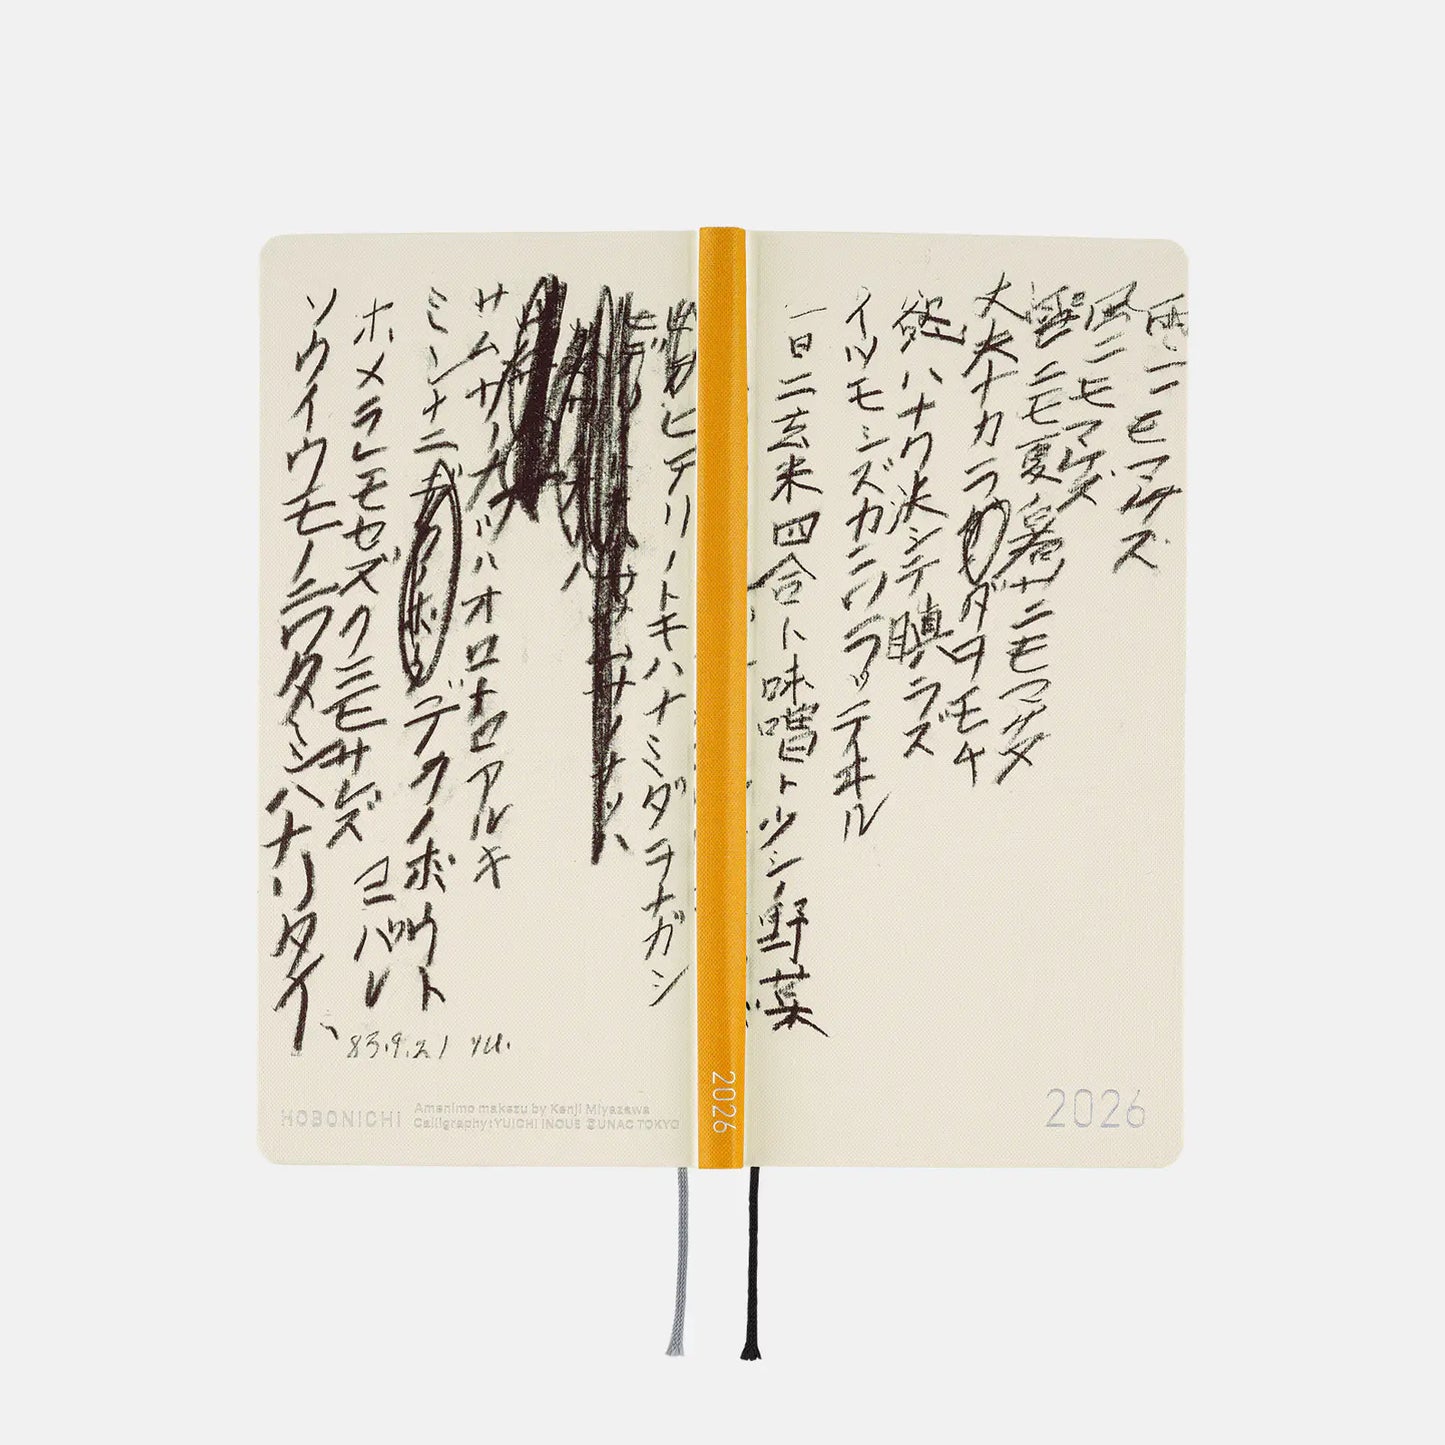 雨ニモマケズ
風ニモマケズ
雪ニモ夏ノ暑サニモマケヌ
丈夫ナカラダヲモチ
慾ハナク決シテ瞋ラズ
イツモシズカニワラッテヰル
一日ニ玄米四合ト味噌ト少シノ野菜
ヒデリノトキハナミダヲナガシ
サムサノナツハオロオロアルキ
ミンナニデクノボウト
ホメラレモセズクニモサレズ
ヨバレ
ソウイウモノニワタシハナリタイ
83.9.21 yu.
HOBONICHI
Amenimo makezu by Kenji Miyazawa
Calligraphy:YUICHI INOUE ©UNAC TOKYO
2026
2026